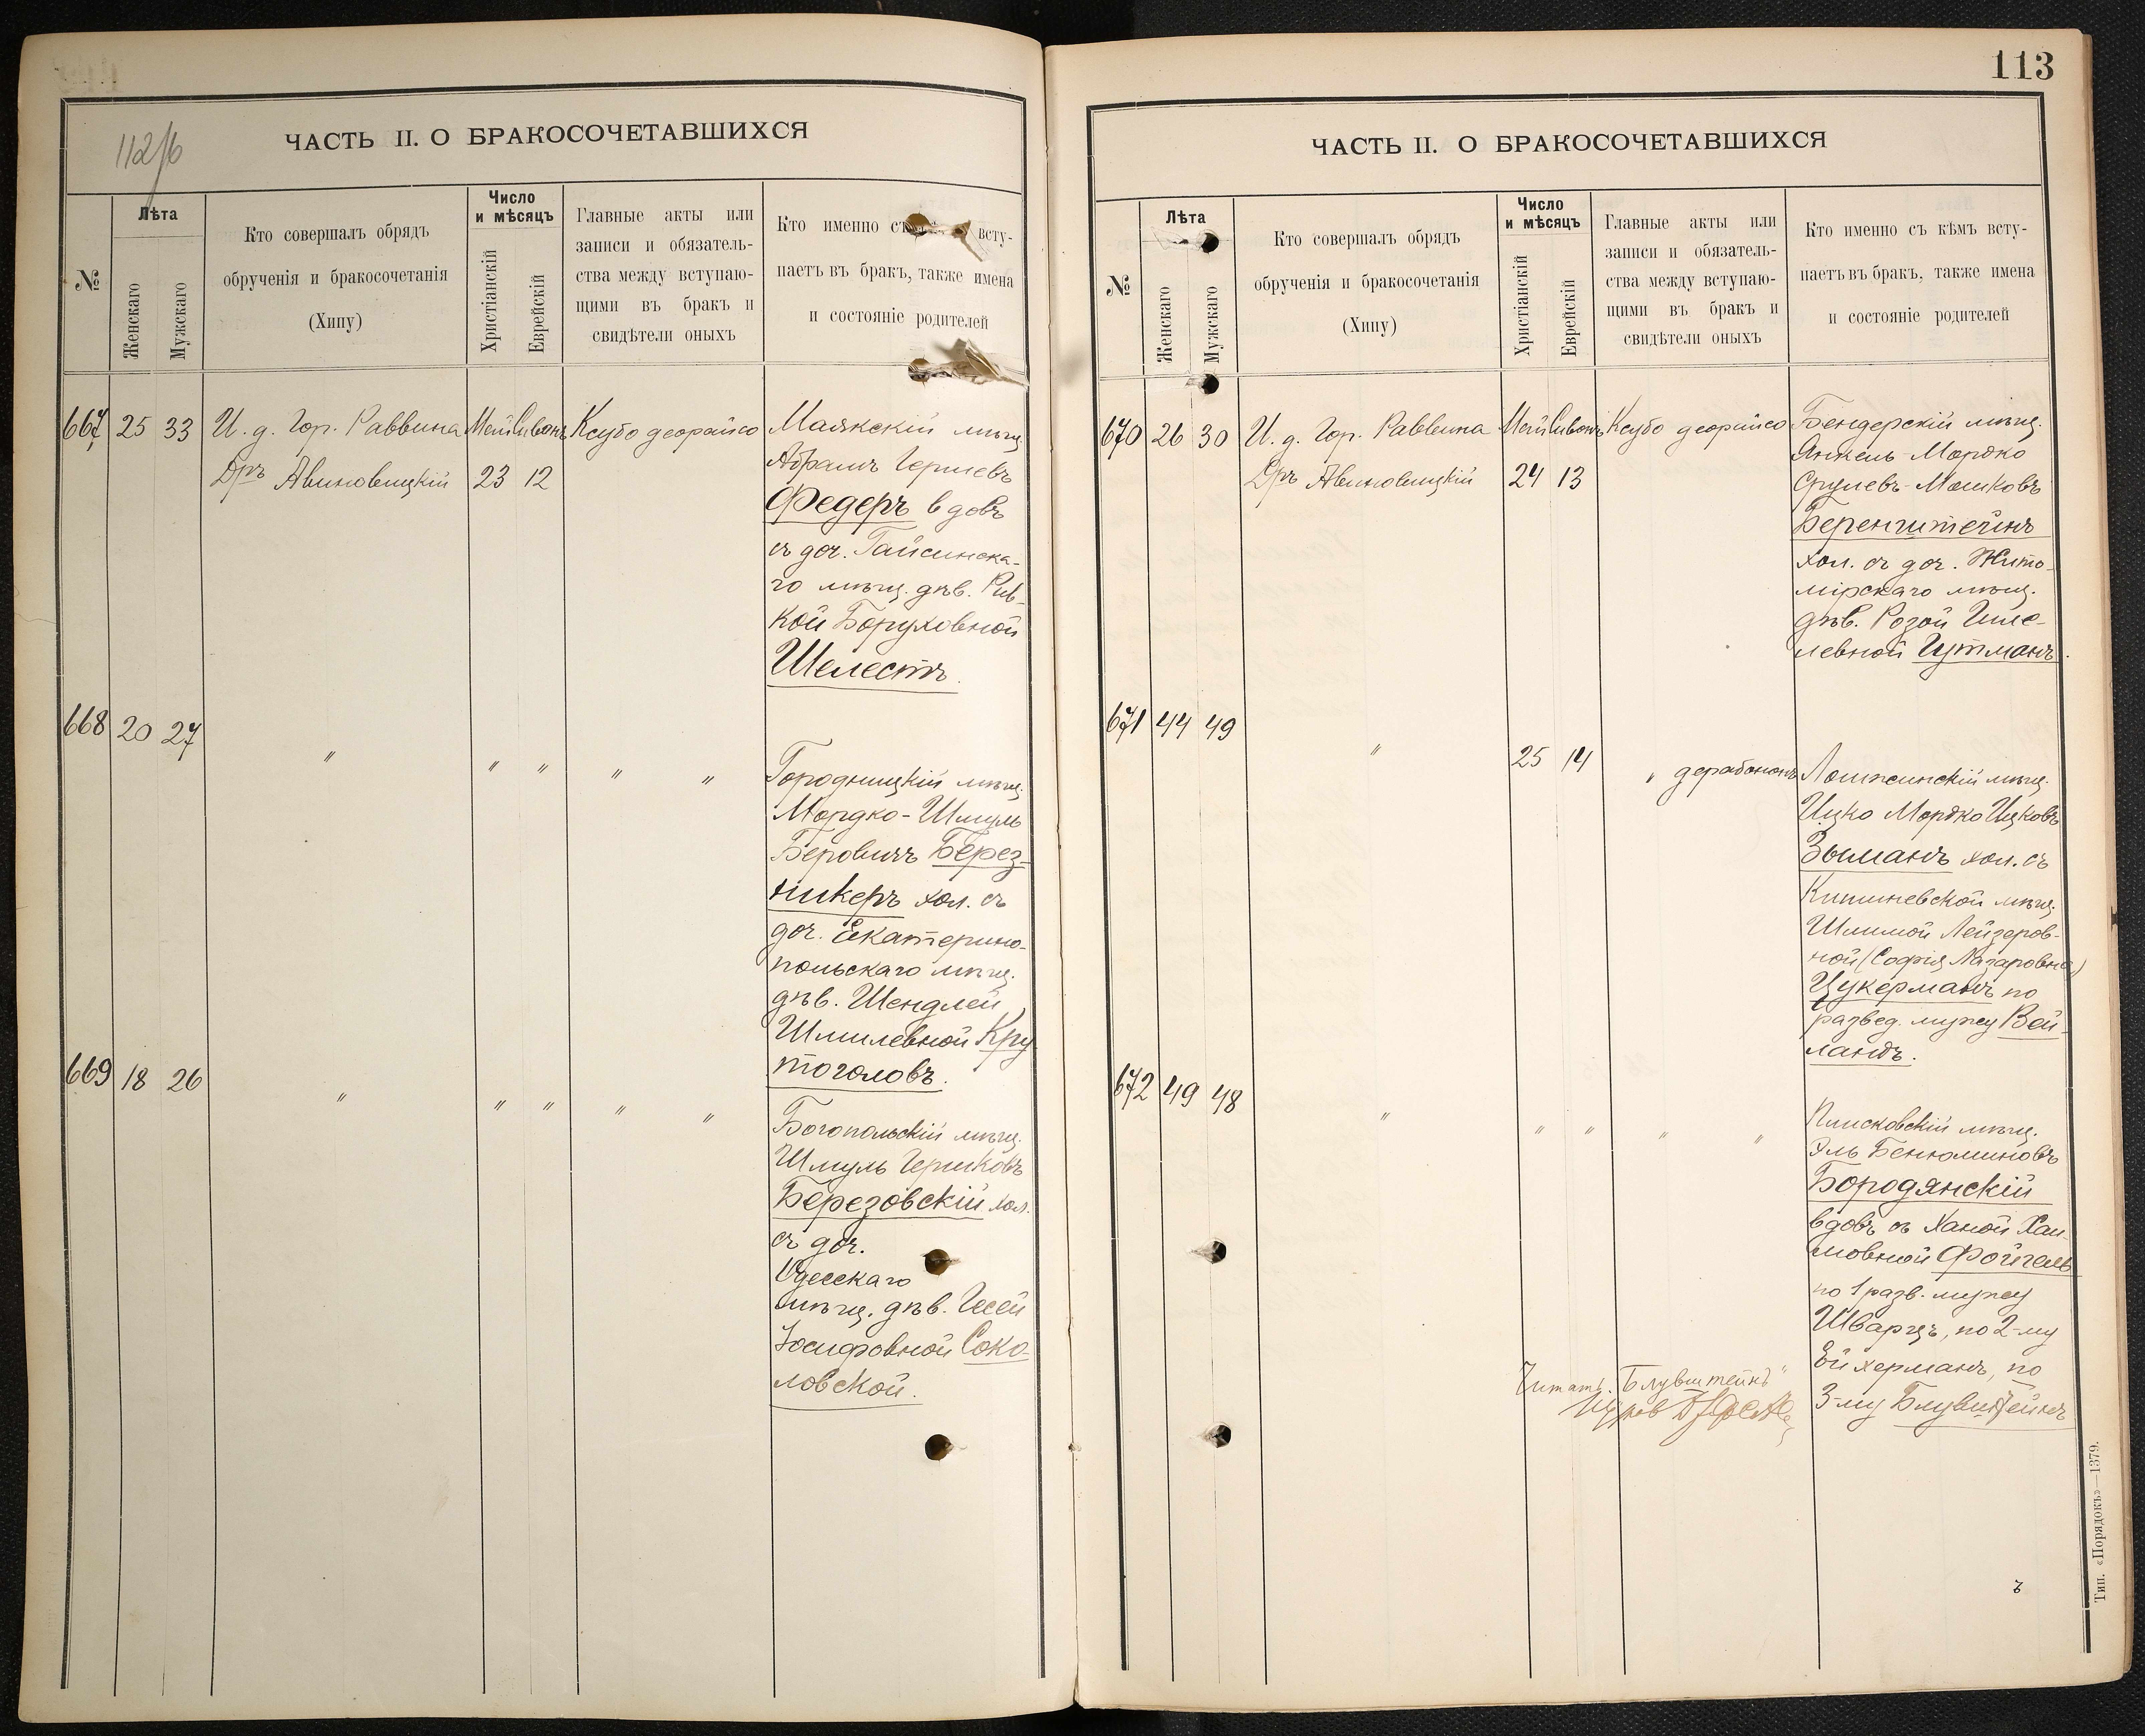 112/б
ЧАСТЬ II. О БРАКОСОЧЕТАВШИХСЯ
№
Лѣта
Женскаго
Мужскаго
Кто совершалъ обрядъ
обрученія и бракосочетанія
(Хипу)
Число
и мѣсяцъ
Христіанскій
Еврейскій
Главные акты или
записи и обязатель-
ства между вступаю-
щими въ бракъ и
свидѣтели оныхъ
Кто именно съ всту-
паетъ въ бракъ, также имена
и состояніе родителей
667 25 33 И. д. Гор. Раввина Май Сивонъ Ксубо деорайсо Маякскій мѣщ.
Дръ Авиновицкій 23 12 Абрамъ Гершевъ
Федеръ вдовъ
съ доч. Гайсинска-
го мѣщ. дѣв. Рив-
кой Боруховной
Шелестъ.
668 20 27
" " " " " Городницкій мѣщ.
Мордко-Шмуль
Беровичъ Берез-
никеръ хол. съ
доч. Екатерино-
польскаго мѣщ.
дѣв. Шендлей
Шмилевной Кру
тоголовъ.
669 18 26
" " " " " Богопольскій мѣщ.
Шмуль Гершковъ
Березовскій хол.
съ доч.
Одесскаго
мѣщ. дѣв. Гесей
Іосифовной Соко-
ловской.
113
ЧАСТЬ II. О БРАКОСОЧЕТАВШИХСЯ
№
Лѣта
Женскаго
Мужскаго
Кто совершалъ обрядъ
обрученія и бракосочетанія
(Хипу)
Число
и мѣсяцъ
Христіанскій
Еврейскій
Главные акты или
записи и обязатель-
ства между вступаю-
щими въ бракъ и
свидѣтели оныхъ
Кто именно съ кѣмъ всту-
паетъ въ бракъ, также имена
и состояніе родителей
670 26 30 И. д. Гор. Раввина Май Сивонъ Ксубо деорайсо Бендерскій мѣщ.
Дръ Авиновицкій 24 13 Янкель-Мордко
Срулевъ-Мошковъ
Беренштейнъ
хол. съ доч. Жито-
мірскаго мѣщ.
дѣв. Розой
левной Гутманъ.
671 44 49
" 25 14 " дерабононъ Ломжинскій мѣщ.
Ицко Мордко Ицковъ
Зыманъ хол. съ
Кишиневской мѣщ.
Шлимой Лейзеров-
ной (Софія Лазаровна)
Цукерманъ по
развед. мужу Вей-
ландъ.
672 49 48
" " " " " Плисковскій мѣщ.
Эль Бенюминовъ
Бородянскій
вдовъ съ Ханой Хаи-
мовной Фойгель
по 1 разв. мужу
Шварцъ, по 2-му
Ейхерманъ, по
3-му Блувштейнъ
Читать: "Блувштейнъ"
ъ
Тип. «Порядокъ»—1379.